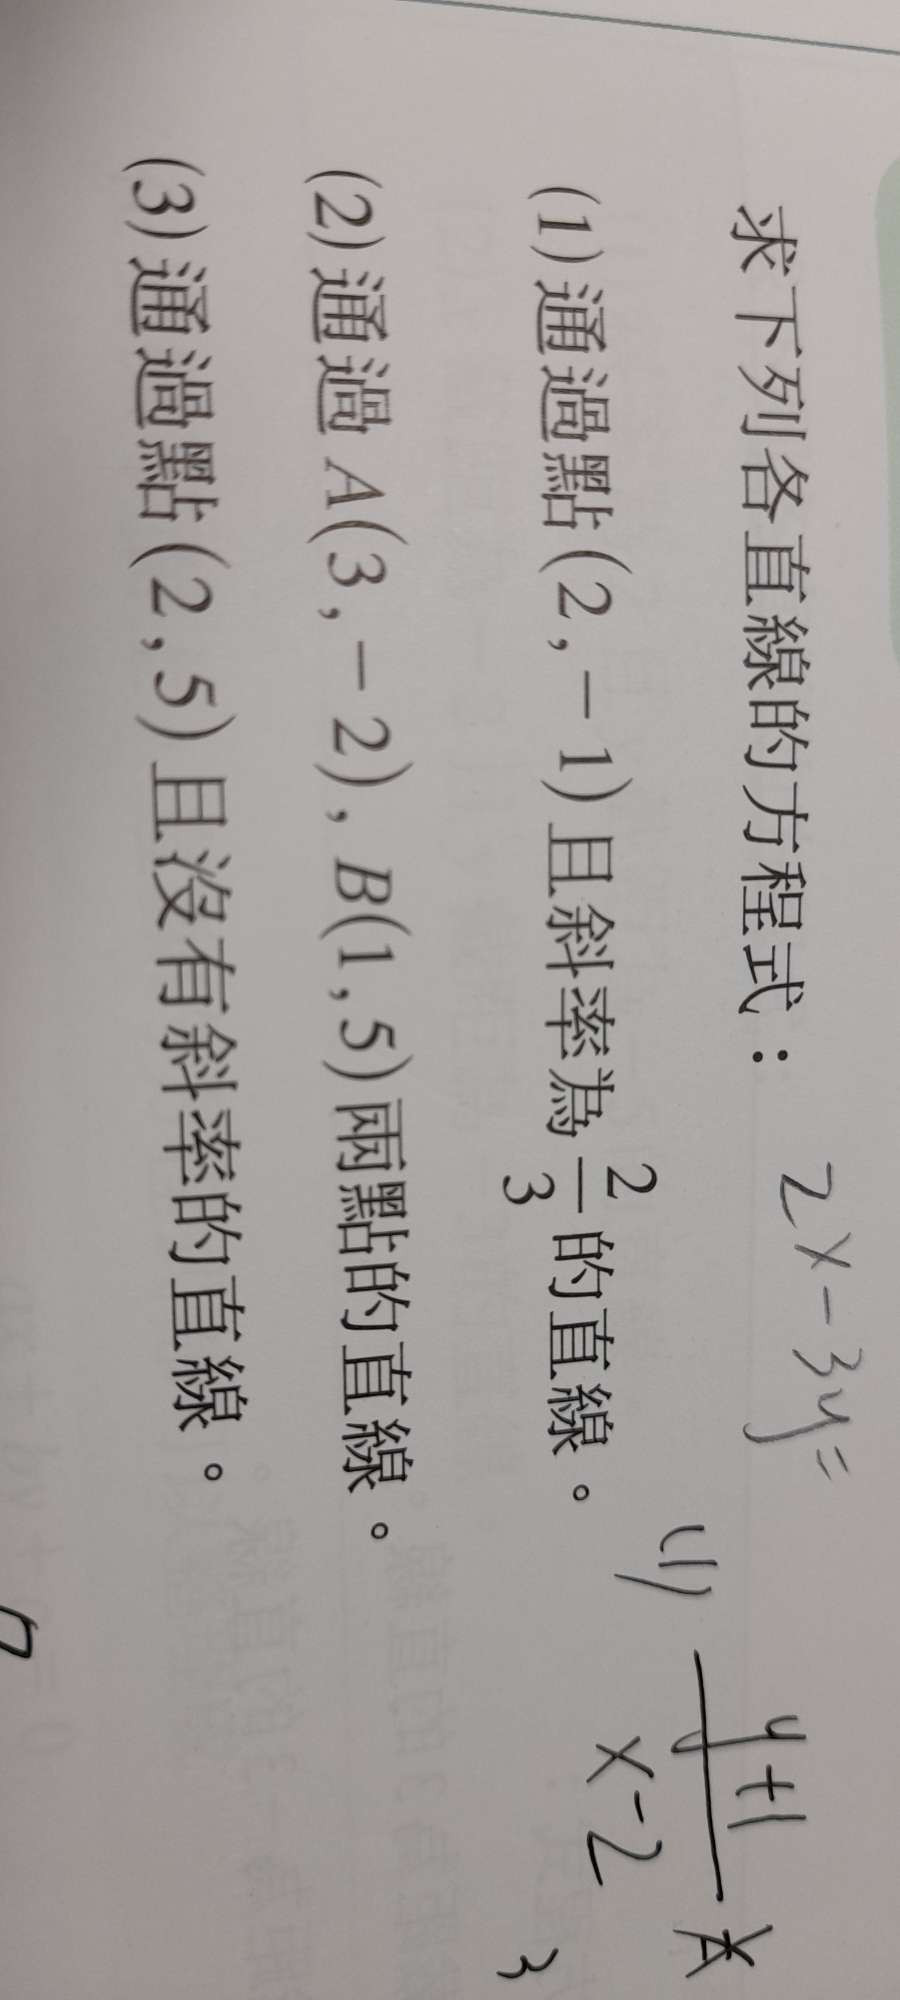 求下列各直線的方程式：
2x-3y=
(1)通過點(2,-1)且斜率為2/3的直線。
(1) y+1
x-2
3
(2)通過A(3,-2),B(1,5)兩點的直線。
(3)通過點(2,5)且沒有斜率的直線。